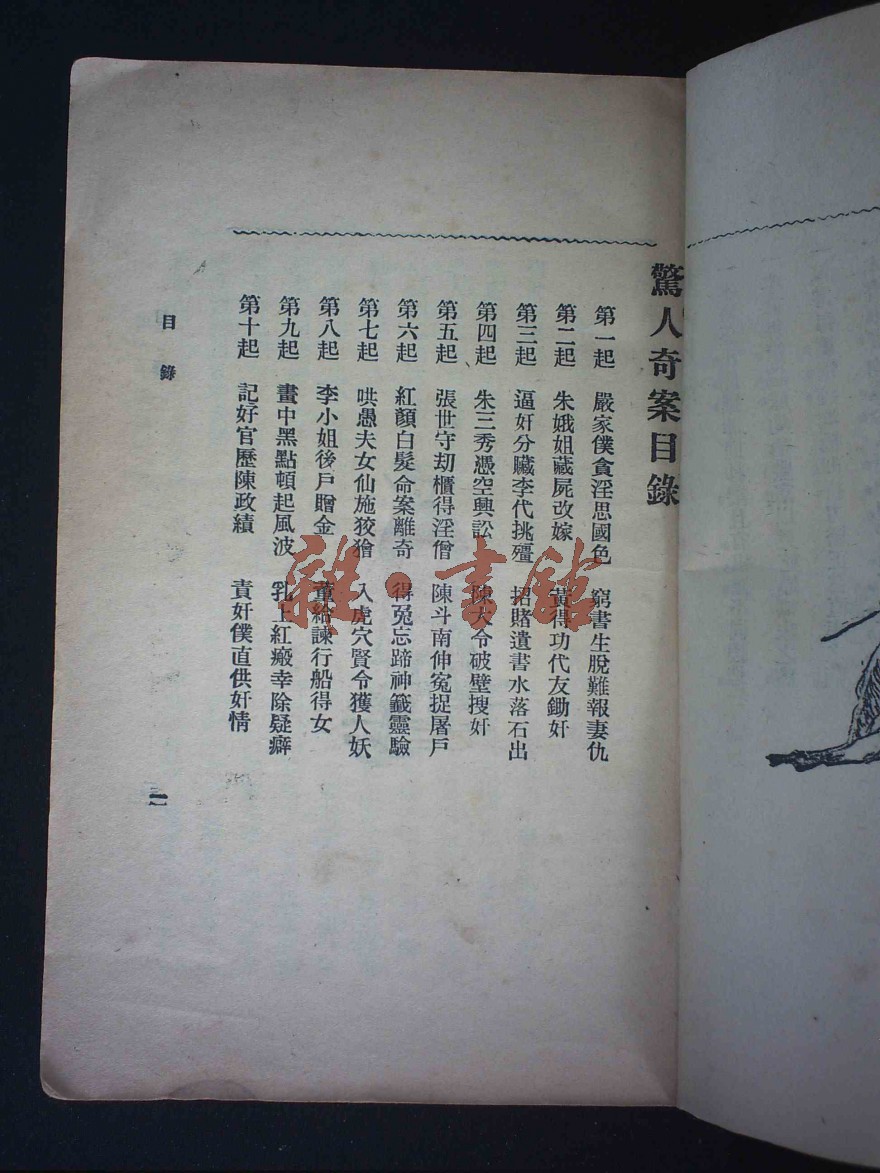 驚人奇案目錄
第一起 嚴家僕貪淫思國色 窮書生脫難報妻仇
第二起 朱娥姐藏屍改嫁 黃得功代友鋤奸
第三起 逼奸分贓李代挑殭 招賭遺書水落石出
第四起 朱三秀憑空興訟 陳大令破壁搜奸
第五起 張世守刧櫃得淫僧 陳斗南伸冤捉屠戶
第六起 紅顏白髮命案離奇 得兔忘蹄神籤靈驗
第七起 哄愚夫女仙施狡獪 入虎穴賢令獲人妖
第八起 李小姐後戶贈金 董給諫行船得女
第九起 畫中黑點頓起風波 乳上紅瘢幸除疑癖
第十起 記好官歷陳政績 責奸僕直供奸情
目錄
一
雜·書館